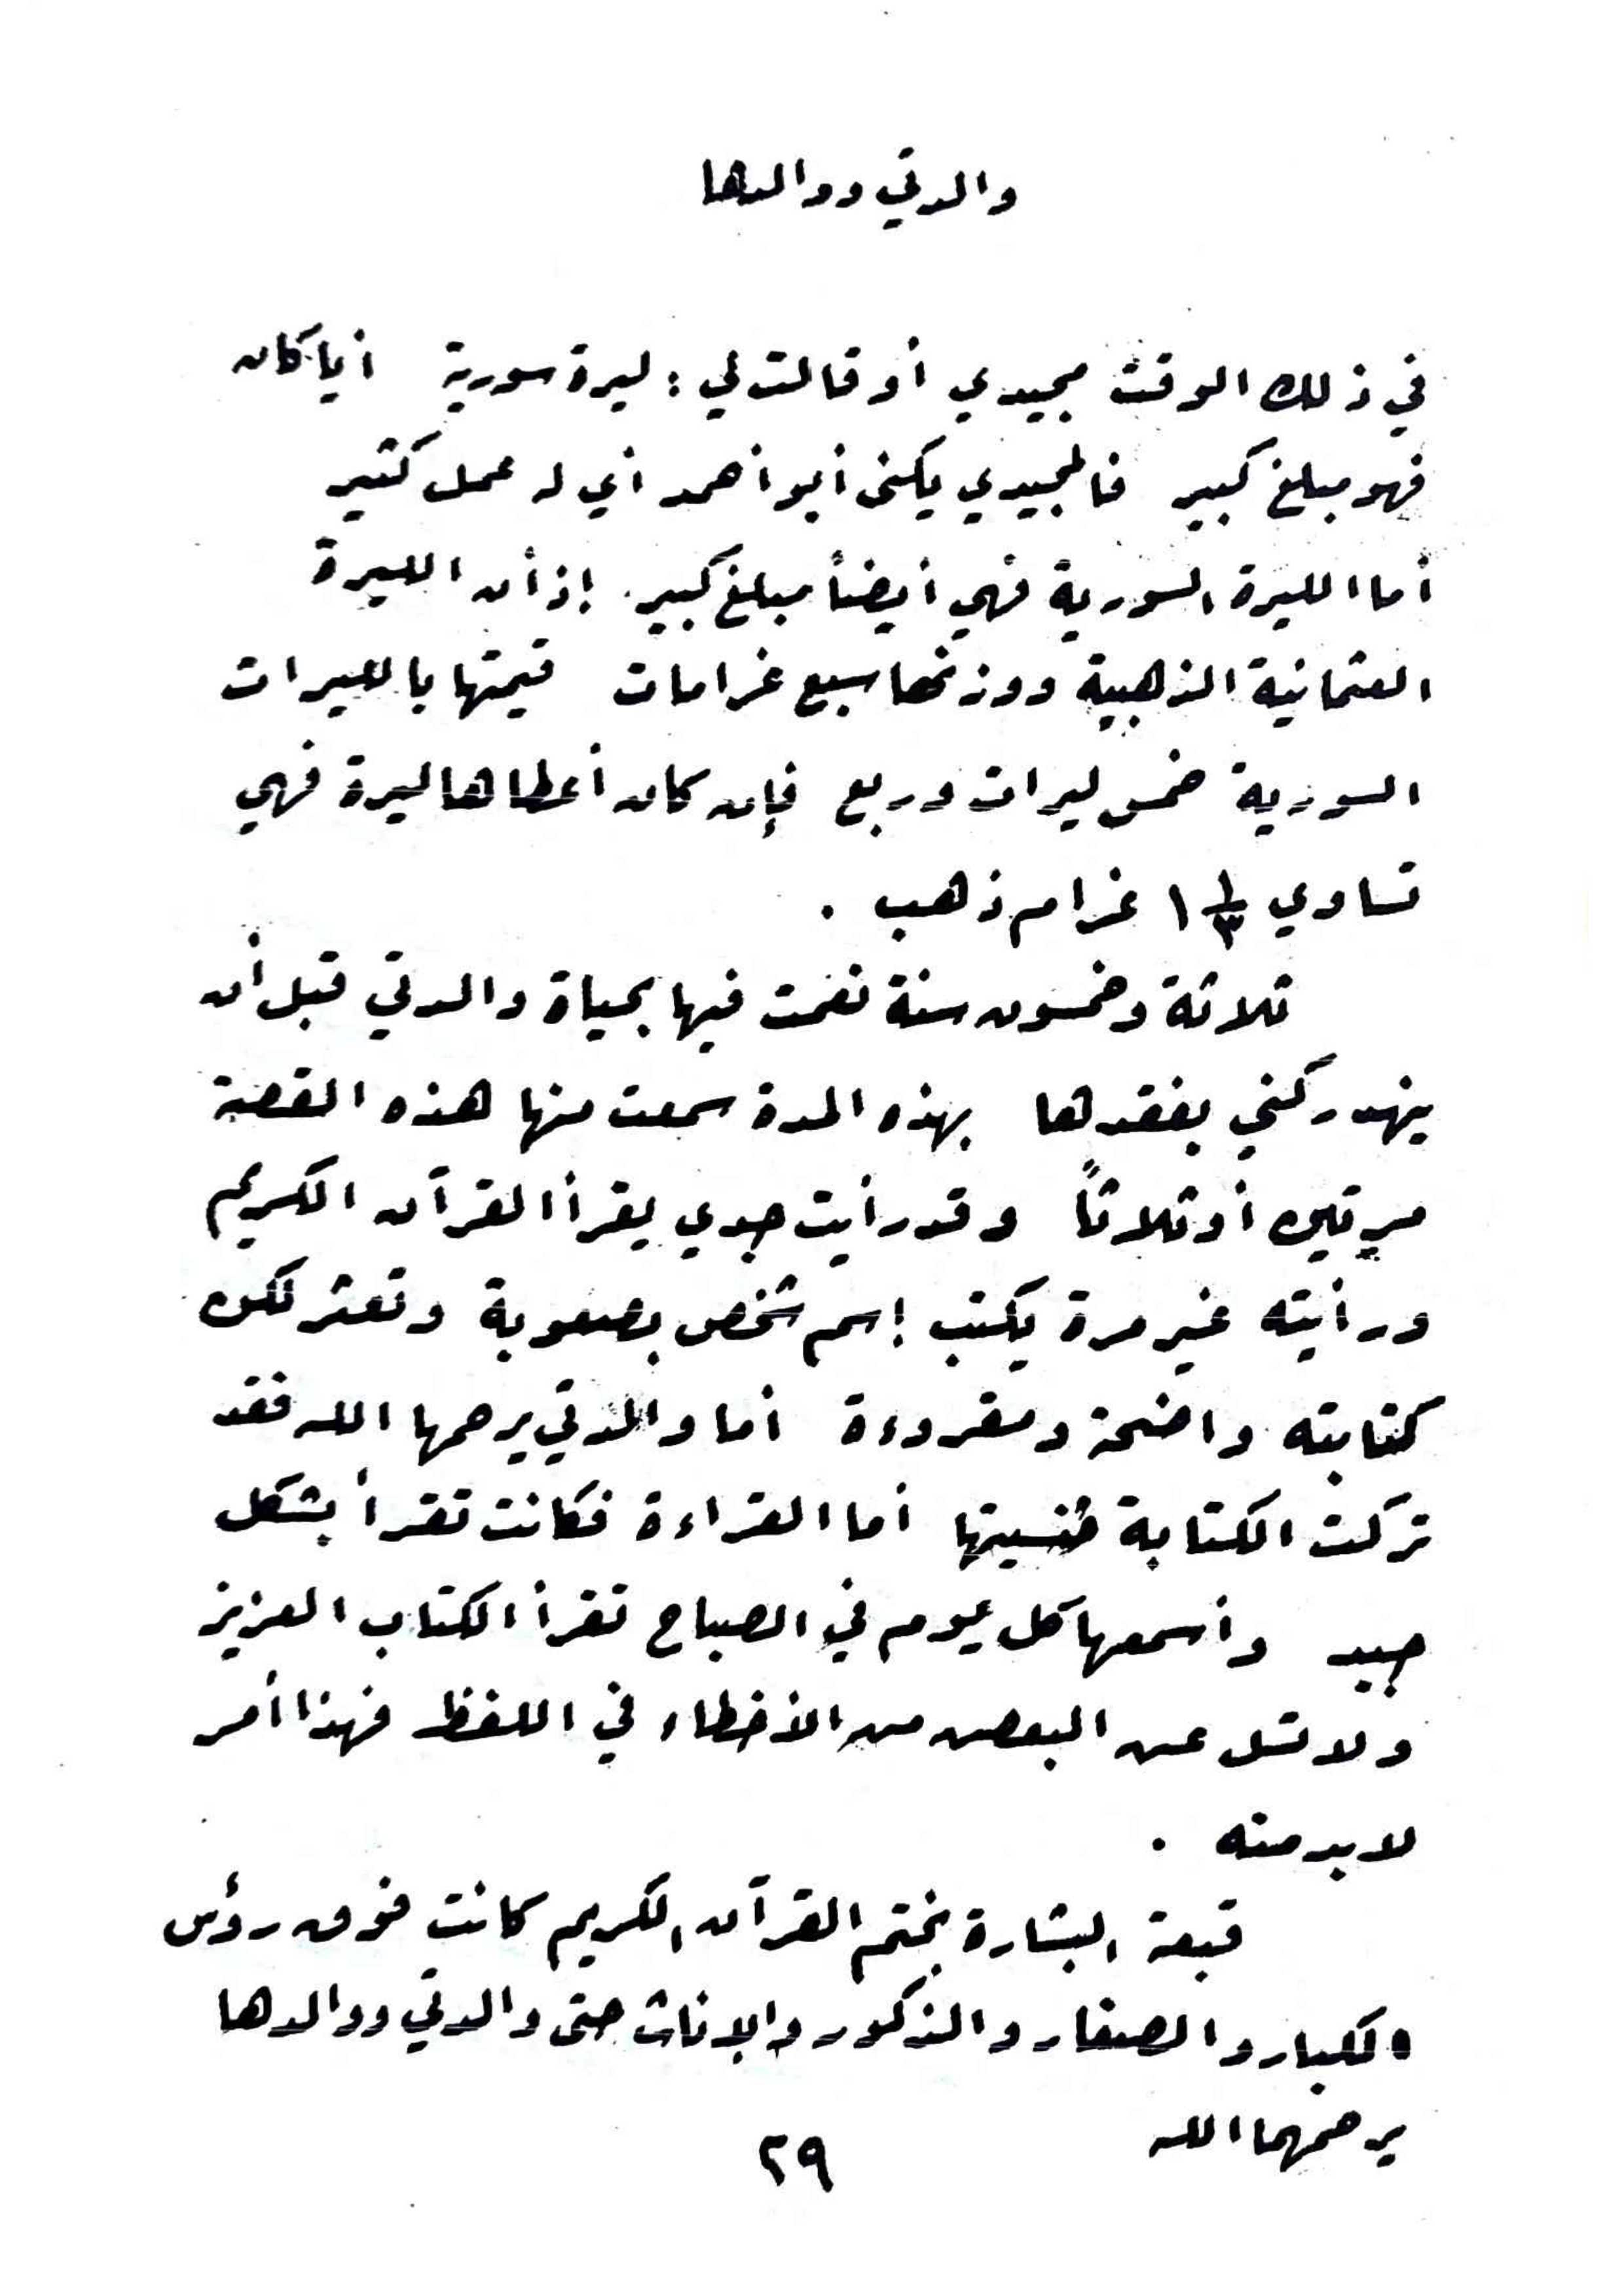 والدتي ووالدها
في ذلك الوقت مجيدي أو قالت لي : ليرة سورية أياً كان
فهو مبلغ كبير فالمجيدي يكنى أبو أحمد أي له عمل كثير
أما الليرة السورية فهي أيضاً مبلغ كبير . إذ أن الليرة
العثمانية الذهبية ووزنها سبع غرامات قيمتها بالليرات
السورية خمس ليرات وربع فإن كان أعطاها ليرة فهي
تساوي ١ ١/٣ غرام ذهب .
ثلاثة وخمسون سنة نعمت فيها بحياة والدتي قبل أن
ينهد ركني بفقدها بهذه المدة سمعت منها هذه القصة
مرتين أو ثلاثاً وقد رأيت جدي يقرأ القرآن الكريم
ورأيته غير مرة يكتب إسم شخص بصعوبة وتعثر لكن
كتابته واضحة ومقروءة أما والدتي يرحمها الله فقد
تركت الكتابة فنسيتها أما القراءة فكانت تقرأ بشكل
جيد وأسمعها كل يوم في الصباح تقرأ الكتاب العزيز
ولا تسل عن البعض من الأخطاء في اللفظ فهذا أمر
لا بد منه .
قبعة البشارة بختم القرآن الكريم كانت فوق رؤس
الكبار والصغار والذكور والإناث حتى والدتي ووالدها
يرحمهما الله
٢٩